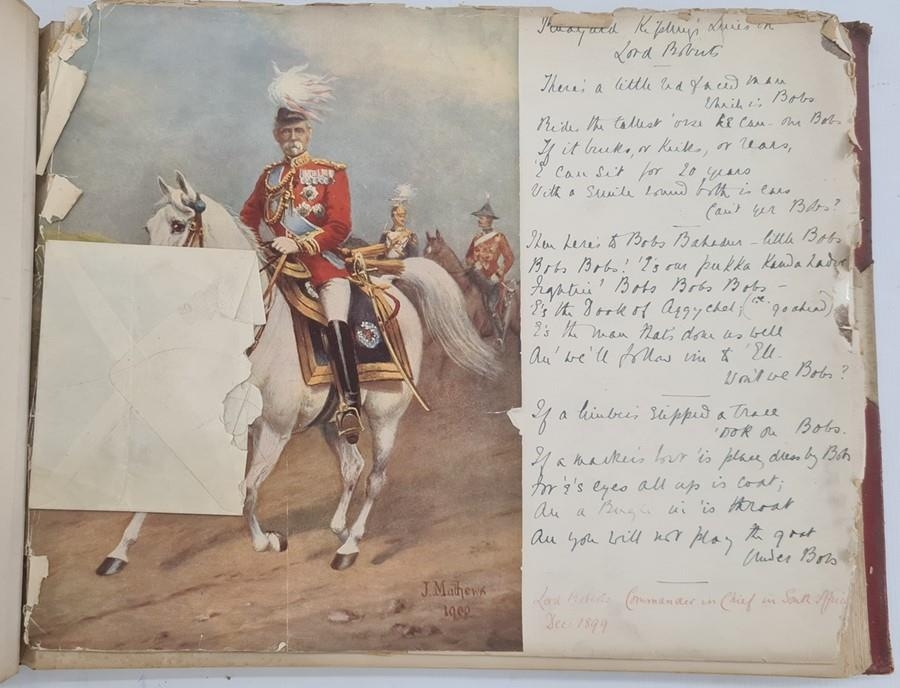 Rudyard Kipling's Lines on
Lord Roberts
There's a little red faced man
Which is Bobs
Rides the tallest 'orse he can - our Bobs
If it bucks, or kicks, or rears,
'E can sit for 20 years
With a smile round both is ears
Can't yer Bobs?
Then here's to Bobs Bahadur - little Bobs
Bobs Bobs! 'E's our pukka Kandahader
Fightin' Bobs Bobs Bobs -
E's the Dook of Aggychel; (goahead)
E's the man that's done us well
An' we'll follow im to 'Ell -
Won't we Bobs?
If a limber's slipped a trace
'Ook on Bobs.
If a marker's lost 'is place, dress by Bobs
For 'E's eyes all up is coat;
An a Bugle in 'is throat
An you will not play the goat
Under Bobs
Lord Roberts Commander in Chief in South Africa
Dec 1899
J. Mathews
1900